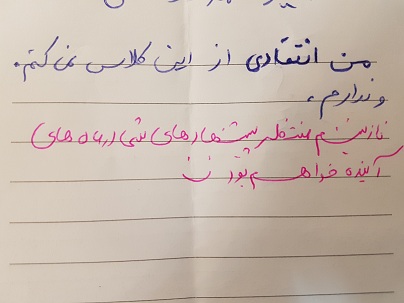 من انتقادی از این کلاس نمی‌کنم.
و ندارم.
نازنینم منتظر پیشنهادهای شما در ماه‌های
آینده خواهم بود